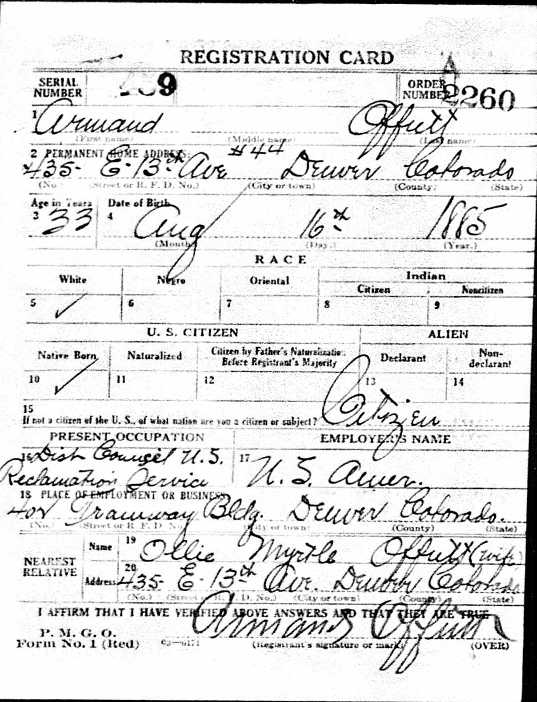 REGISTRATION CARD
SERIAL NUMBER 9 ORDER NUMBER A 2260
1 Armand Offutt
(First name) (Middle name) (Last name)
2 PERMANENT HOME ADDRESS:
435 E. 13th Ave #44 Denver Colorado
(No.) (Street or R. F. D. No.) (City or town) (County) (State)
Age in Years Date of Birth
3 33 4 Aug 16th 1885
(Month.) (Day.) (Year.)
RACE
White Negro Oriental Indian
Citizen Noncitizen
5 ✓ 6 7 8 9
U. S. CITIZEN ALIEN
Native Born Naturalized Citizen by Father's Naturalization Before Registrant's Majority Declarant Non-declarant
10 ✓ 11 12 13 14
15
If not a citizen of the U. S., of what nation are you a citizen or subject? Citizen
PRESENT OCCUPATION EMPLOYER'S NAME
16 Dist Counsel U.S. 17 U. S. Amer.
Reclamation Service
18 PLACE OF EMPLOYMENT OR BUSINESS
Tramway Bldg. Denver Colorado.
(No.) (Street or R. F. D. No.) (City or town) (County) (State)
NEAREST RELATIVE Name 19 Ollie Myrtle Offutt (wife)
Address 20 435 E. 13th Ave. Denver Colorado
(No.) (Street or R. F. D. No.) (City or town) (County) (State)
I AFFIRM THAT I HAVE VERIFIED ABOVE ANSWERS AND THAT THEY ARE TRUE
Armand Offutt
P. M. G. O.
Form No. 1 (Red) 03—6171 (Registrant's signature or mark) (OVER)